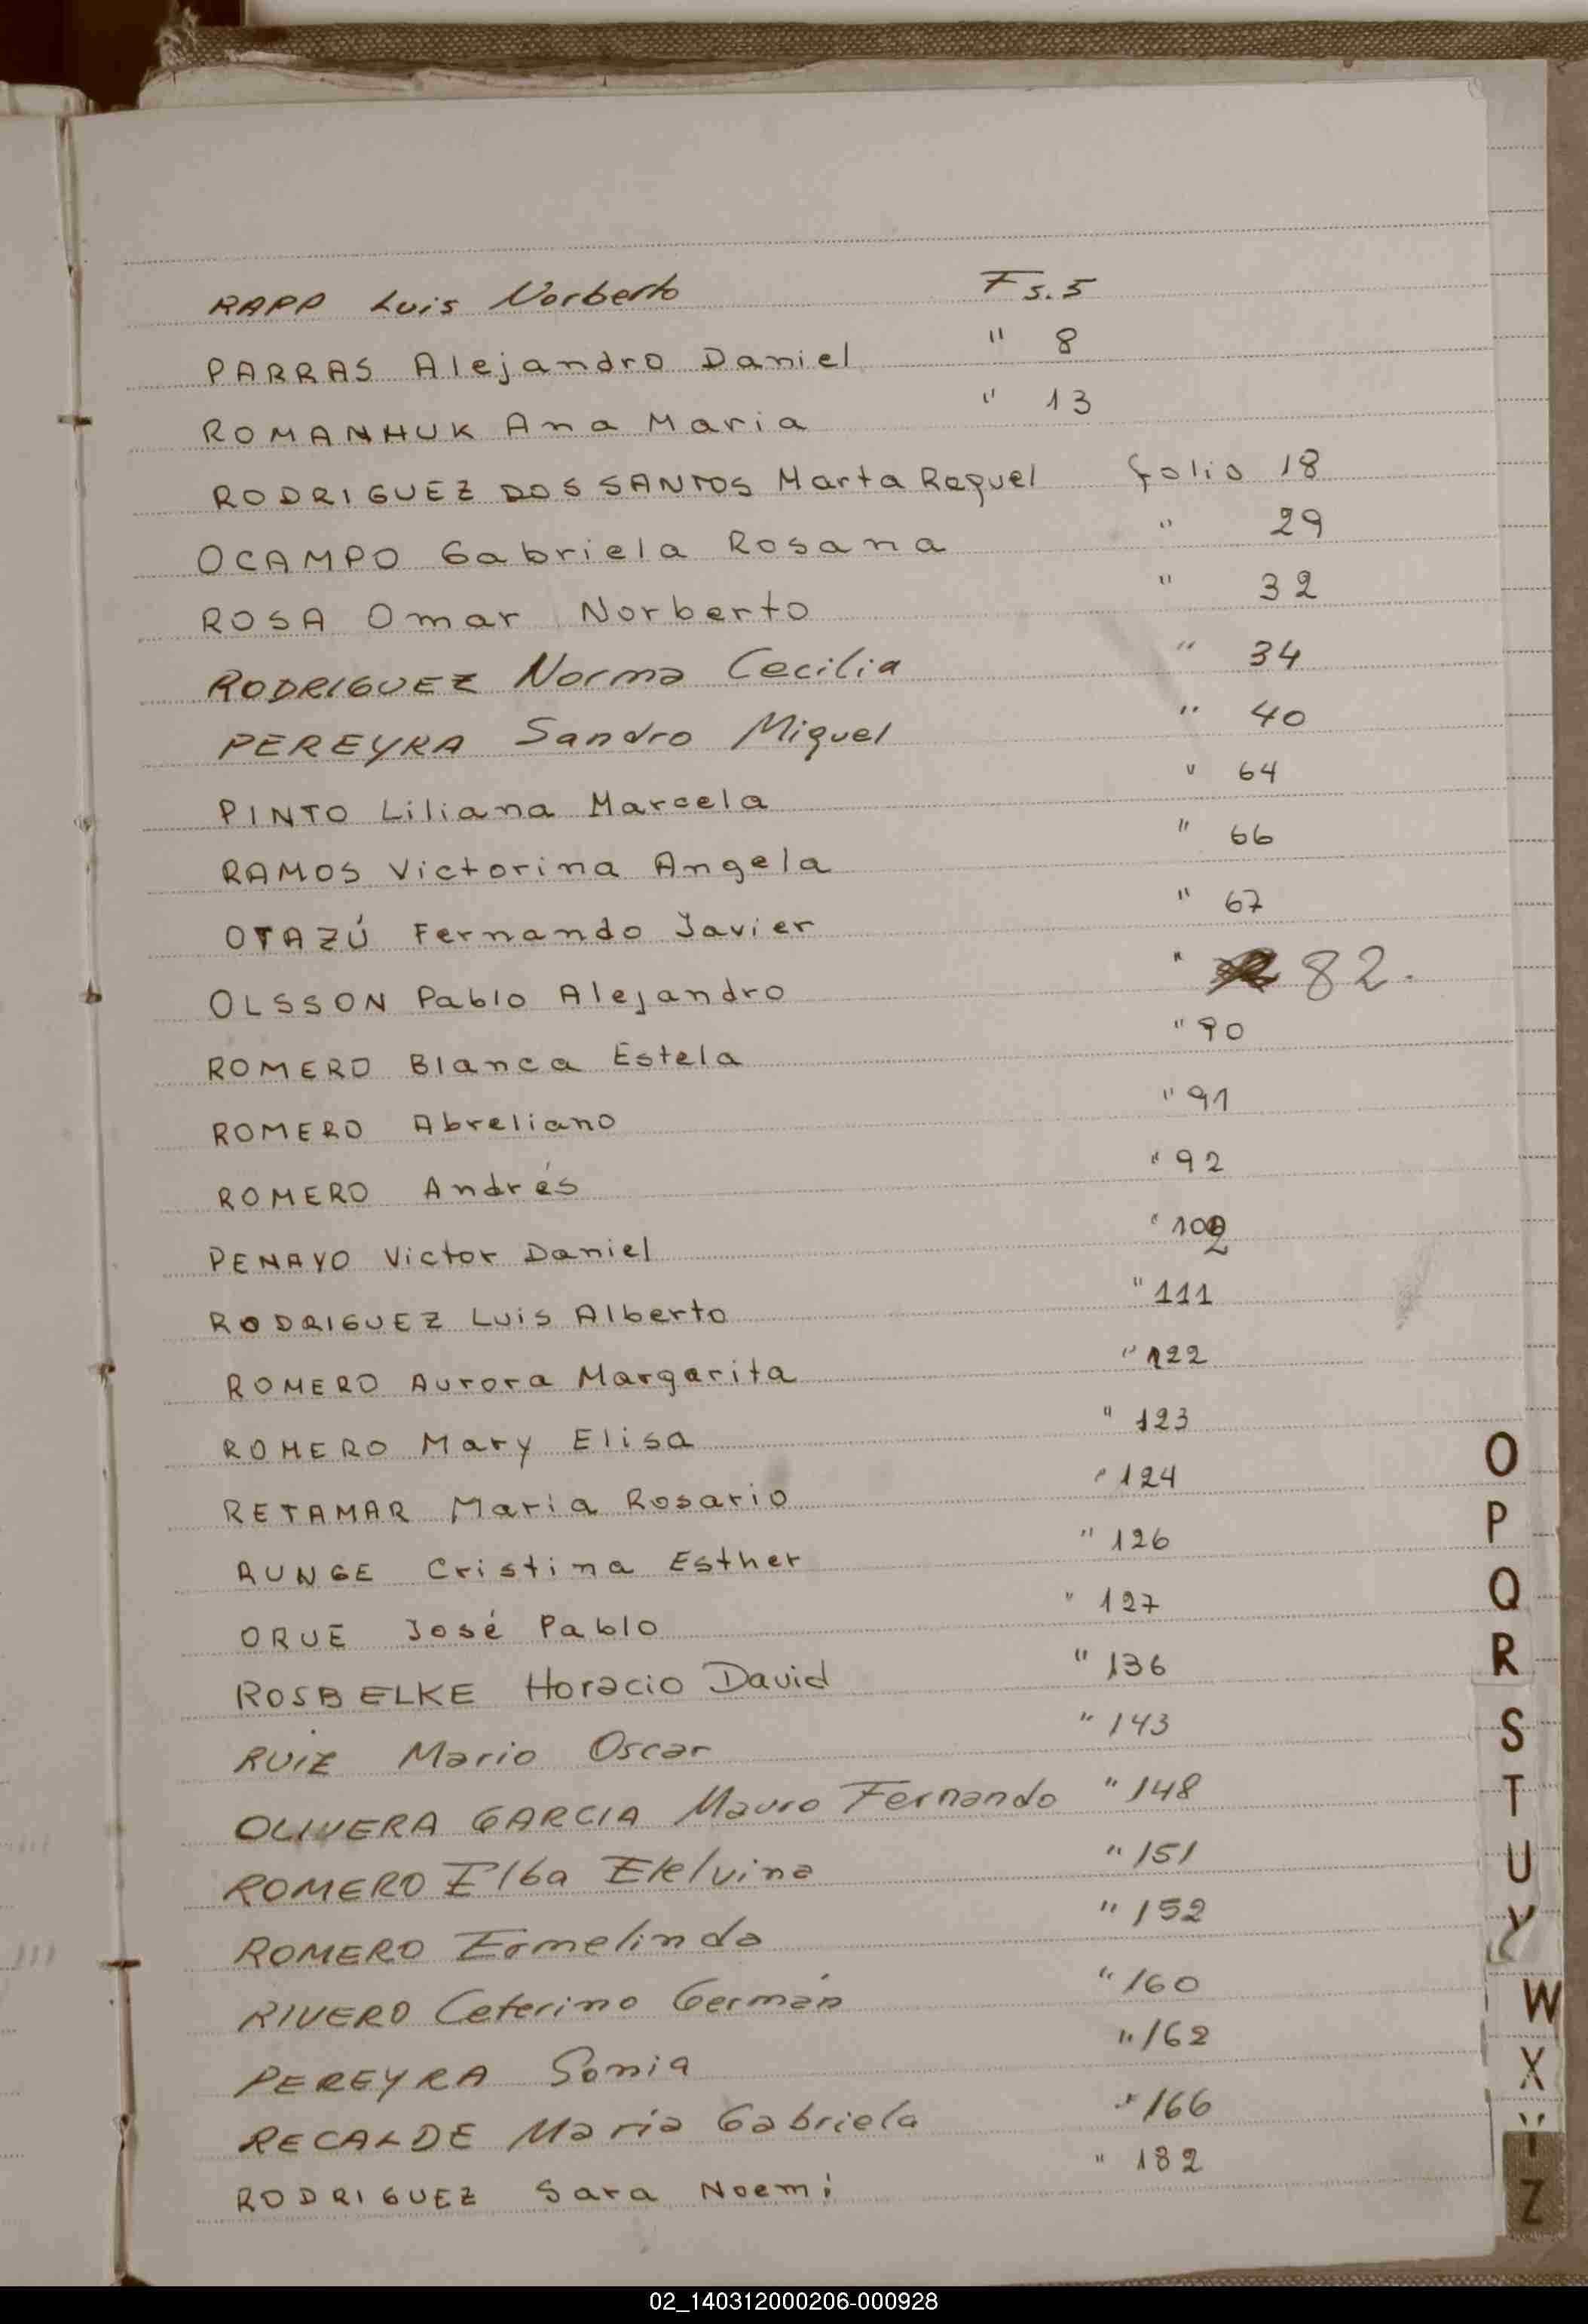 RAPP Luis Norberto Fs. 5
PARRAS Alejandro Daniel " 8
ROMANHUK Ana Maria " 13
RODRIGUEZ DOS SANTOS Marta Raquel folio 18
OCAMPO Gabriela Rosana " 29
ROSA Omar Norberto " 32
RODRIGUEZ Norma Cecilia " 34
PEREYRA Sandro Miguel " 40
PINTO Liliana Marcela " 64
RAMOS Victorina Angela " 66
OTAZÚ Fernando Javier " 67
OLSSON Pablo Alejandro " 82.
ROMERO Blanca Estela " 90
ROMERO Abreliano " 91
ROMERO Andrés " 92
PENAYO Victor Daniel " 102
RODRIGUEZ Luis Alberto " 111
ROMERO Aurora Margarita " 122
ROMERO Mary Elisa " 123
RETAMAR María Rosario " 124
RUNGE Cristina Esther " 126
ORUE José Pablo " 127
ROSBELKE Horacio David " 136
RUIZ Mario Oscar " 143
OLIVERA GARCIA Mauro Fernando " 148
ROMERO Elba " 151
ROMERO Ermelinda " 152
RIVERO Ceferino Germán " 160
PEREYRA Sonia " 162
RECALDE María Gabriela " 166
RODRIGUEZ Sara Noemí " 182
O
P
Q
R
S
T
U
Y
W
X
Y
Z
02_140312000206-000928